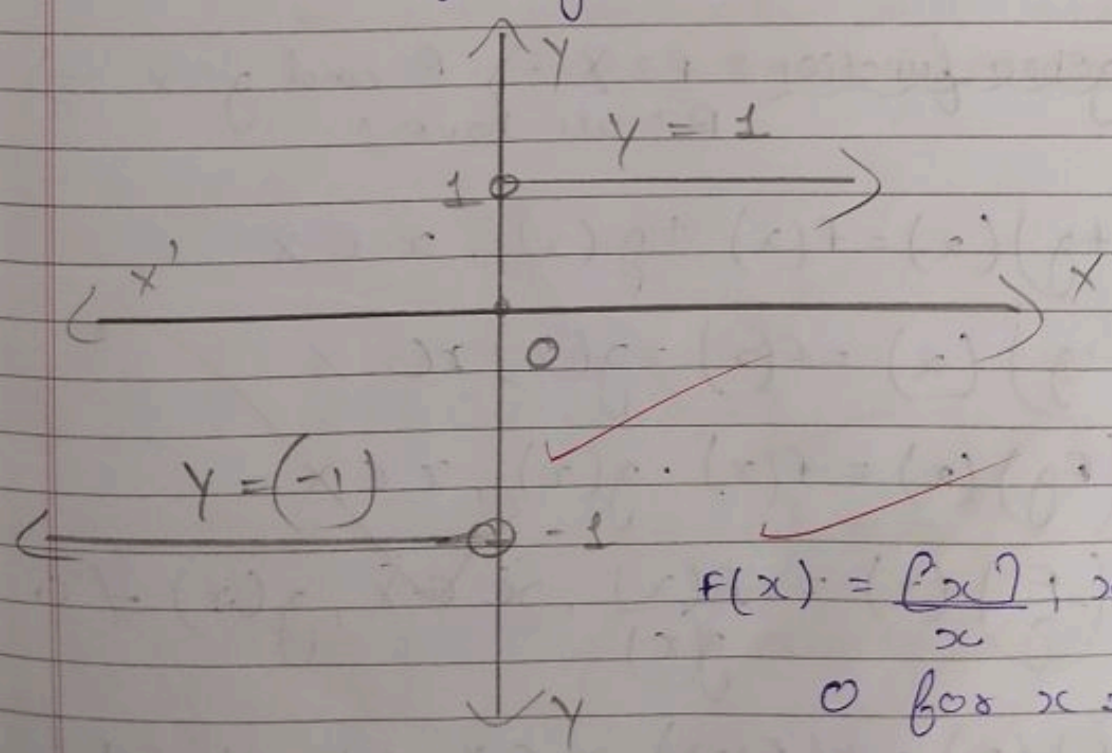 Y
y = 1
1
x'
X
O
y = (-1)
-1
f(x) = [x] ; x
x
0 for x =
Y